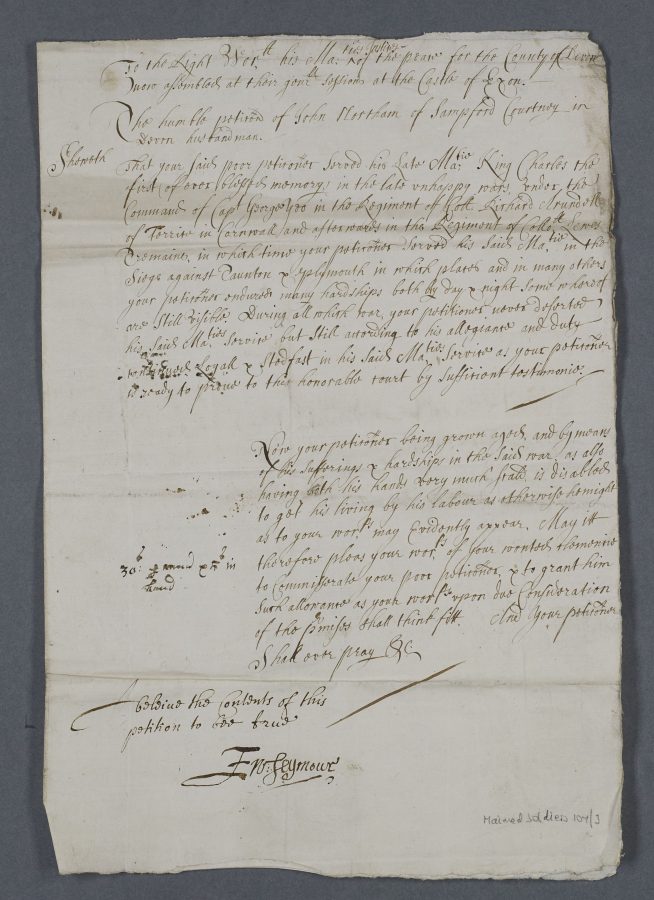 To the Right Wor.ll his Ma.ties Justices of the peace for the County of Devon
now assembled at their gen.ll Sessions at the Castle of Exon.
The humble peticon of John Northam of Sampford Courtney in
Devon husbandman.
Sheweth
That your said poor petitioner served his Late Ma.tie King Charles the
first (of ever blessed memory) in the late unhappy wars, under the
Command of Cap.t George Yeo in the Regiment of Coll. Richard Arundell
of Terrice in Cornwall and afterwards in the Regiment of Collo.ll Lewes
Tremaine, in which time your petitioner served his said Ma.tie in the
Siege against Taunton & Plymouth in which places and in many others
your petitioner endured many hardships both by day & night some whereof
are Still visible During all which war, your petitioner never deserted
his said Ma.ties Service but Still according to his allegiance and duty
continued Loyall & Stedfast in his said Ma.ties Service as your petitioner
is ready to prove to this honorable court by sufficient testimonie.
Now your petitioner being grown aged, and by means
of his sufferings & hardships in the said war, as also
having both his hands very much is disabled
to get his living by his labour as otherwise he might
as to your wor.ps may Evidently appear. May itt
therefore pleas your wor.ps of your wonted clemencie
to Commiserate your poor petitioner, & to grant him
such allowance as your wor.ps upon due Consideration
of the p.rmises shall think fitt. And Your petitioner
Shall ever pray &c
30s p annu & 5s in
hand
I beleive the Contents of this
petition to bee true
Seymour
Maimed soldiers 107/3